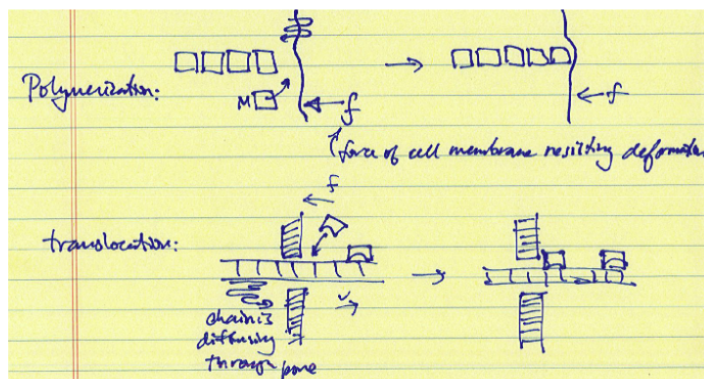 Polymerization:
M
f
f
force of cell membrane resisting deformation
f
translocation:
v
chain is
diffusing
through pore